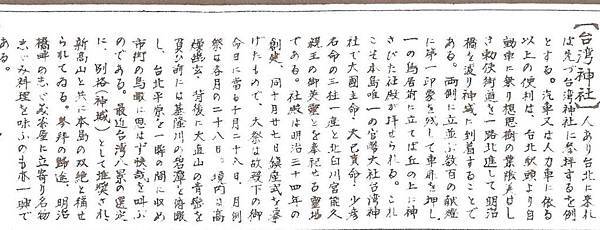 【台湾神社】人あり台北に来れ
ば先づ台湾神社に参拝するを例
とする。汽車又は人力車に依る
以上の便利は、台北駅頭より自
動車に乗り想思樹の葉隠美はし
き勅使街道を一路北進して明治
橋を渡り神域に到着することで
ある。両側に立並ぶ数百の献燈
に第一印象を残して車扉を押し
一の鳥居前に立てば丘の上に神
さびた社殿が拝せられる。これ
こそ本島唯一の官幣大社台湾神
社で大國主命・大己貴命・少彦
名命の三社一座と北白川宮能久
親王の御英霊とを奉祀せる霊場
である。社殿は明治三十四年の
創建、同十月廿七日鎮座式を挙
げたもので、大祭は故殿下の御
命日に当る十月二十八日、月例
祭は各月の二十八日。境内は高
燥幽玄、背後に大直山の青巒を
負ひ前には基隆川の碧潭を俯瞰
し、台北平原を一眸の間に収め
市街の鳥瞰に思はず快哉を叫ぶ
のである。最近台湾八景の選定
に、別格(神域)として推奨され、
新高山と共に本島の双絶と称せ
られてゐる。参拝の帰途、明治
橋畔の志ぐれ茶屋に立寄り名物
志じみ料理を味ふのも亦一興で
ある。